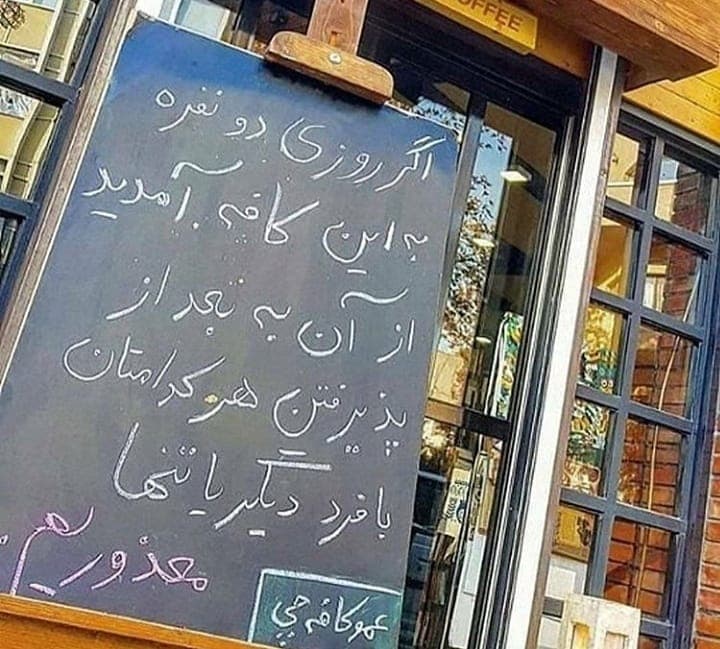 COFFEE
اگر روزی دو نفره
به این کافه آمدید
از آن به بعد از
پذیرفتن هر کدامتان
با فرد دیگر یا تنها
معذوریم.
عمو کافه چی